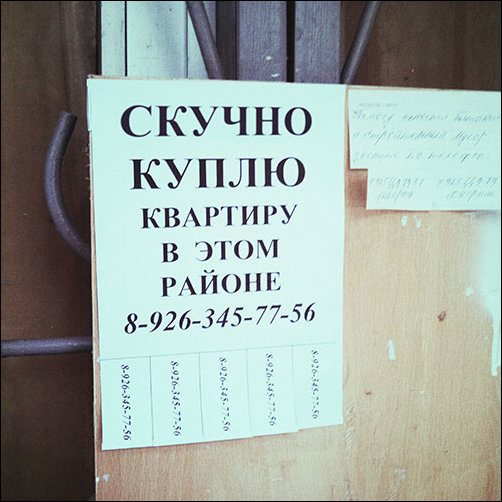 СКУЧНО
КУПЛЮ
КВАРТИРУ
В ЭТОМ
РАЙОНЕ
8-926-345-77-56
8-926-345-77-56
8-926-345-77-56
8-926-345-77-56
8-926-345-77-56
8-926-345-77-56
и строительный мусор